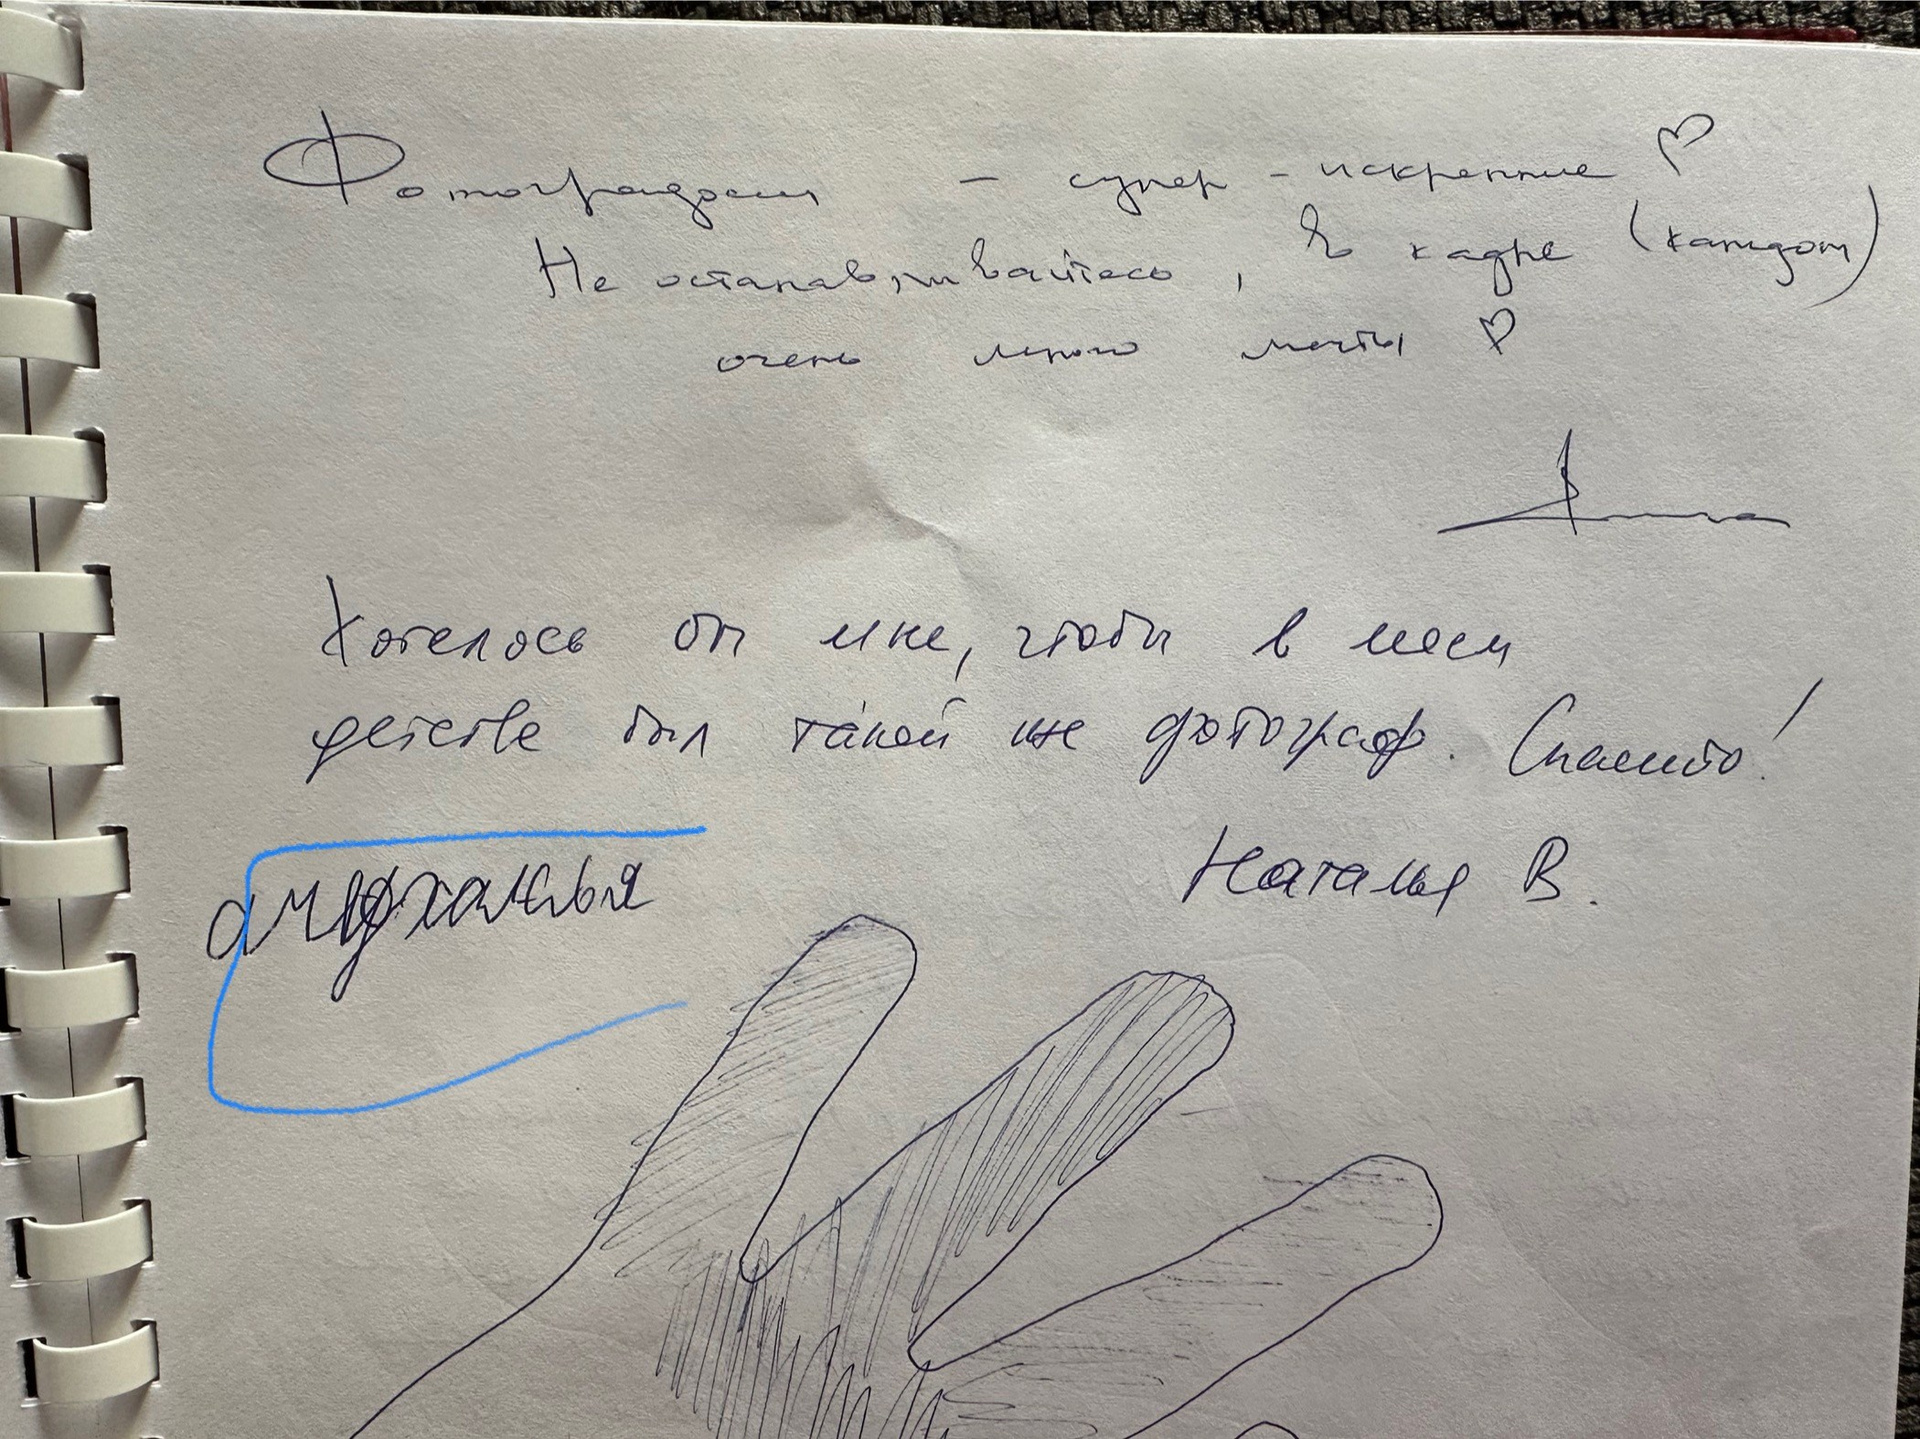 Фотографии - супер - искренние ♡
Не останавливайтесь, в кадре (каждом)
очень много мечты ♡
Хотелось бы мне, чтобы в моем
детстве был такой же фотограф. Спасибо!
Наталья В.